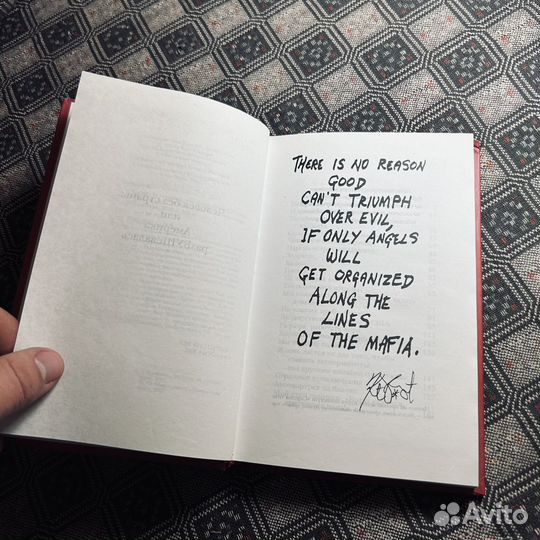 THERE IS NO REASON
GOOD
CAN'T TRIUMPH
OVER EVIL,
IF ONLY ANGELS
WILL
GET ORGANIZED
ALONG THE
LINES
OF THE MAFIA.
Avito